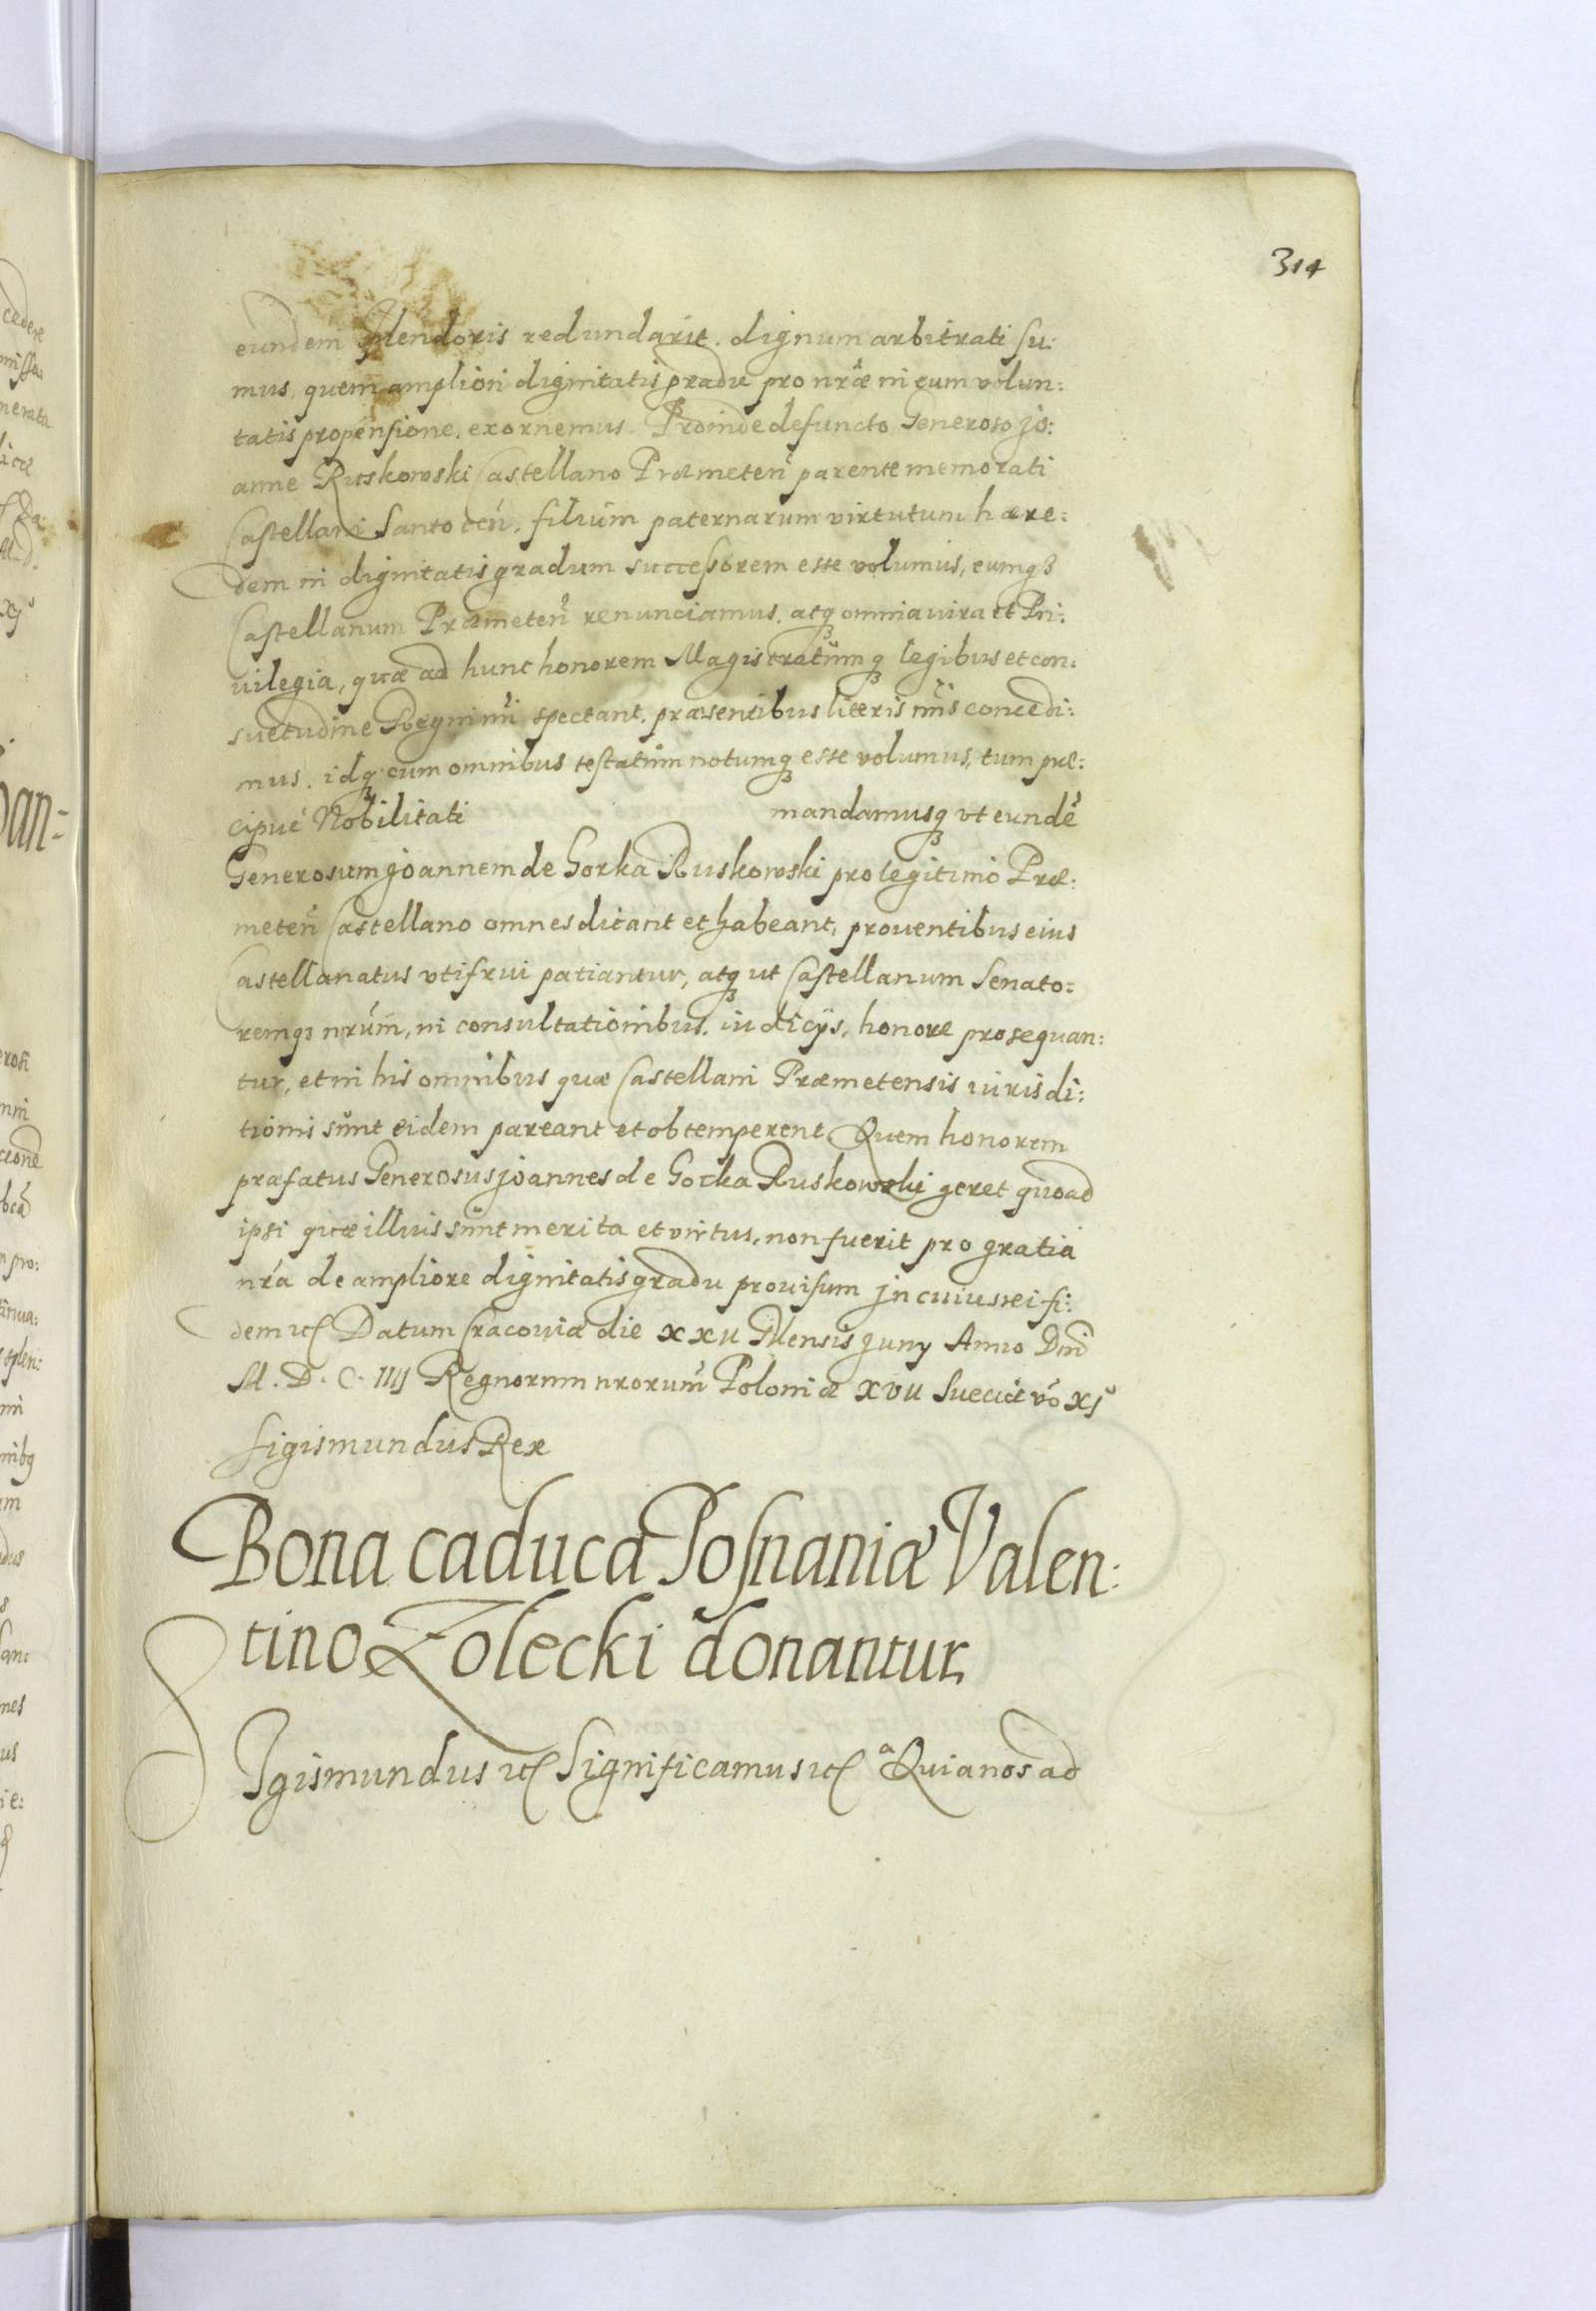 314
eundem splendoris redundarit. dignum arbitrati su:
mus, quem ampliori dignitatis gradu pro nrãe in eum volun:
tatis propensione. exornemus. Proinde defuncto Generoso Jo:
anne Ruskowski Castellano Præmeteñ parente memorati
Castellani Santoceñ, filium paternarum virtutum hære:
dem in dignitatis gradum successorem esse volumus, eumq3
Castellanum Præmeteñ renunciamus, atq3 omnia iura et Pri:
uilegia, quæ ad hunc honorem Magistratumq3 legibus et con:
suetudine Regni nri spectant. præsentibus literis nris concedi:
mus. idq3 cum omnibus testatum notumq3 esse volumus, tum præ:
cipue Nobilitati mandamusq3 vt eundẽ
Generosum Joannem de Gorka Ruskowski pro legitimo Præ:
meteñ Castellano omnes dicant et habeant, prouentibus eius
Castellanatus vti frui patiantur, atq3 ut Castellanum Senato:
remq3 nrum, in consultationibus. iudicijs, honore prosequan:
tur, et in his omnibus quæ Castellani Præmetensis iurisdi:
tionis sunt eidem pareant et obtemperent Quem honorem
præfatus Generosus Joannes de Gorka Ruskowski geret quoad
ipsi quæ illius sunt merita et virtus, non fuerit pro gratia
nrã de ampliore dignitatis gradu prouisum Jn cuius rei fi:
dem etc Datum Cracouiæ die XXII Mensis Juny Anno Dni
M. D. C. IIIJ Regnorum nrorum Poloniæ XVII Sueciæ vo XJ
Sigismundus Rex
Bona caduca Posnaniæ Valen:
tino Zolecki donantur
Sigismundus etc Significamus etc Quia nos ad